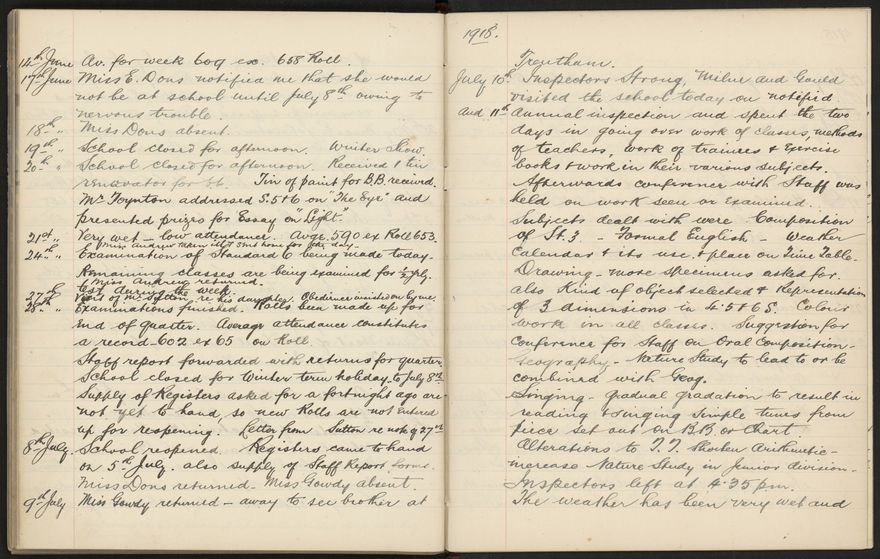 14th June Av. for week 609 ex. 658 Roll.
17th June Miss E. Dons notified me that she would
not be at school until July 8th owing to
nervous trouble.
18th " Miss Dons absent.
19th " School closed for afternoon. Winter Show.
20th " School closed for afternoon. Received 1 tin
renovator for Tin of paint for B.B. received.
Mr Foynton addressed S.5+6 on "The Eye" and
presented prizes for Essay on "Light".
21st " Very wet – low attendance. Avge. 590 ex Roll 653.
Miss Andrew taken ill & sent home for the day –
24th " Examination of Standard 6 being made today.
Remaining classes are being examined for ½ yly.
Miss Andrew returned.
test during the week.
27th Visit of Mr Sutton re his daughter. Obedience insisted on by me.
28th " Examinations finished. Rolls been made up for
end of quarter. Average attendance constitutes
a record 602 ex 65 on Roll.
Staff report forwarded with returns for quarter
School closed for Winter term holiday to July 8th
Supply of Registers asked for a fortnight ago are
not yet to hand, so new Rolls are not entered
up for reopening. Letter from Sutton re note of 27th
8th July. School reopened. Registers came to hand
on 5th July. also supply of Staff Report forms.
Miss Dons returned – Miss Gowdy absent.
9th July Miss Gowdy returned – away to see brother at
1918.
Trentham.
July 10th. Inspectors Strong, Milne and Gould
visited the school today on notified
and 11th annual inspection and spent the two
days in going over work of classes, methods
of teachers, work of trainees & Exercise
books & work in their various subjects.
Afterwards conference with Staff was
held on work seen or examined.
Subjects dealt with were Composition
of St. 3 – Formal English – Weather
Calendar & its use & place on Time Table.
Drawing – more specimens asked for.
also Kind of object selected & Representation
of 3 dimensions in 4.5 & 6 S. Colour
work in all classes. Suggestion for
Conference for Staff on Oral Composition –
Geography – Nature Study to lead to or be
combined with Geog.
Singing – gradual gradation to result in
reading & singing simple tunes from
piece set out on B.B. or Chart.
Alterations to T.T. Shorten Arithmetic –
increase Nature Study in junior division –
Inspectors left at 4.35 p.m.
The weather has been very wet and